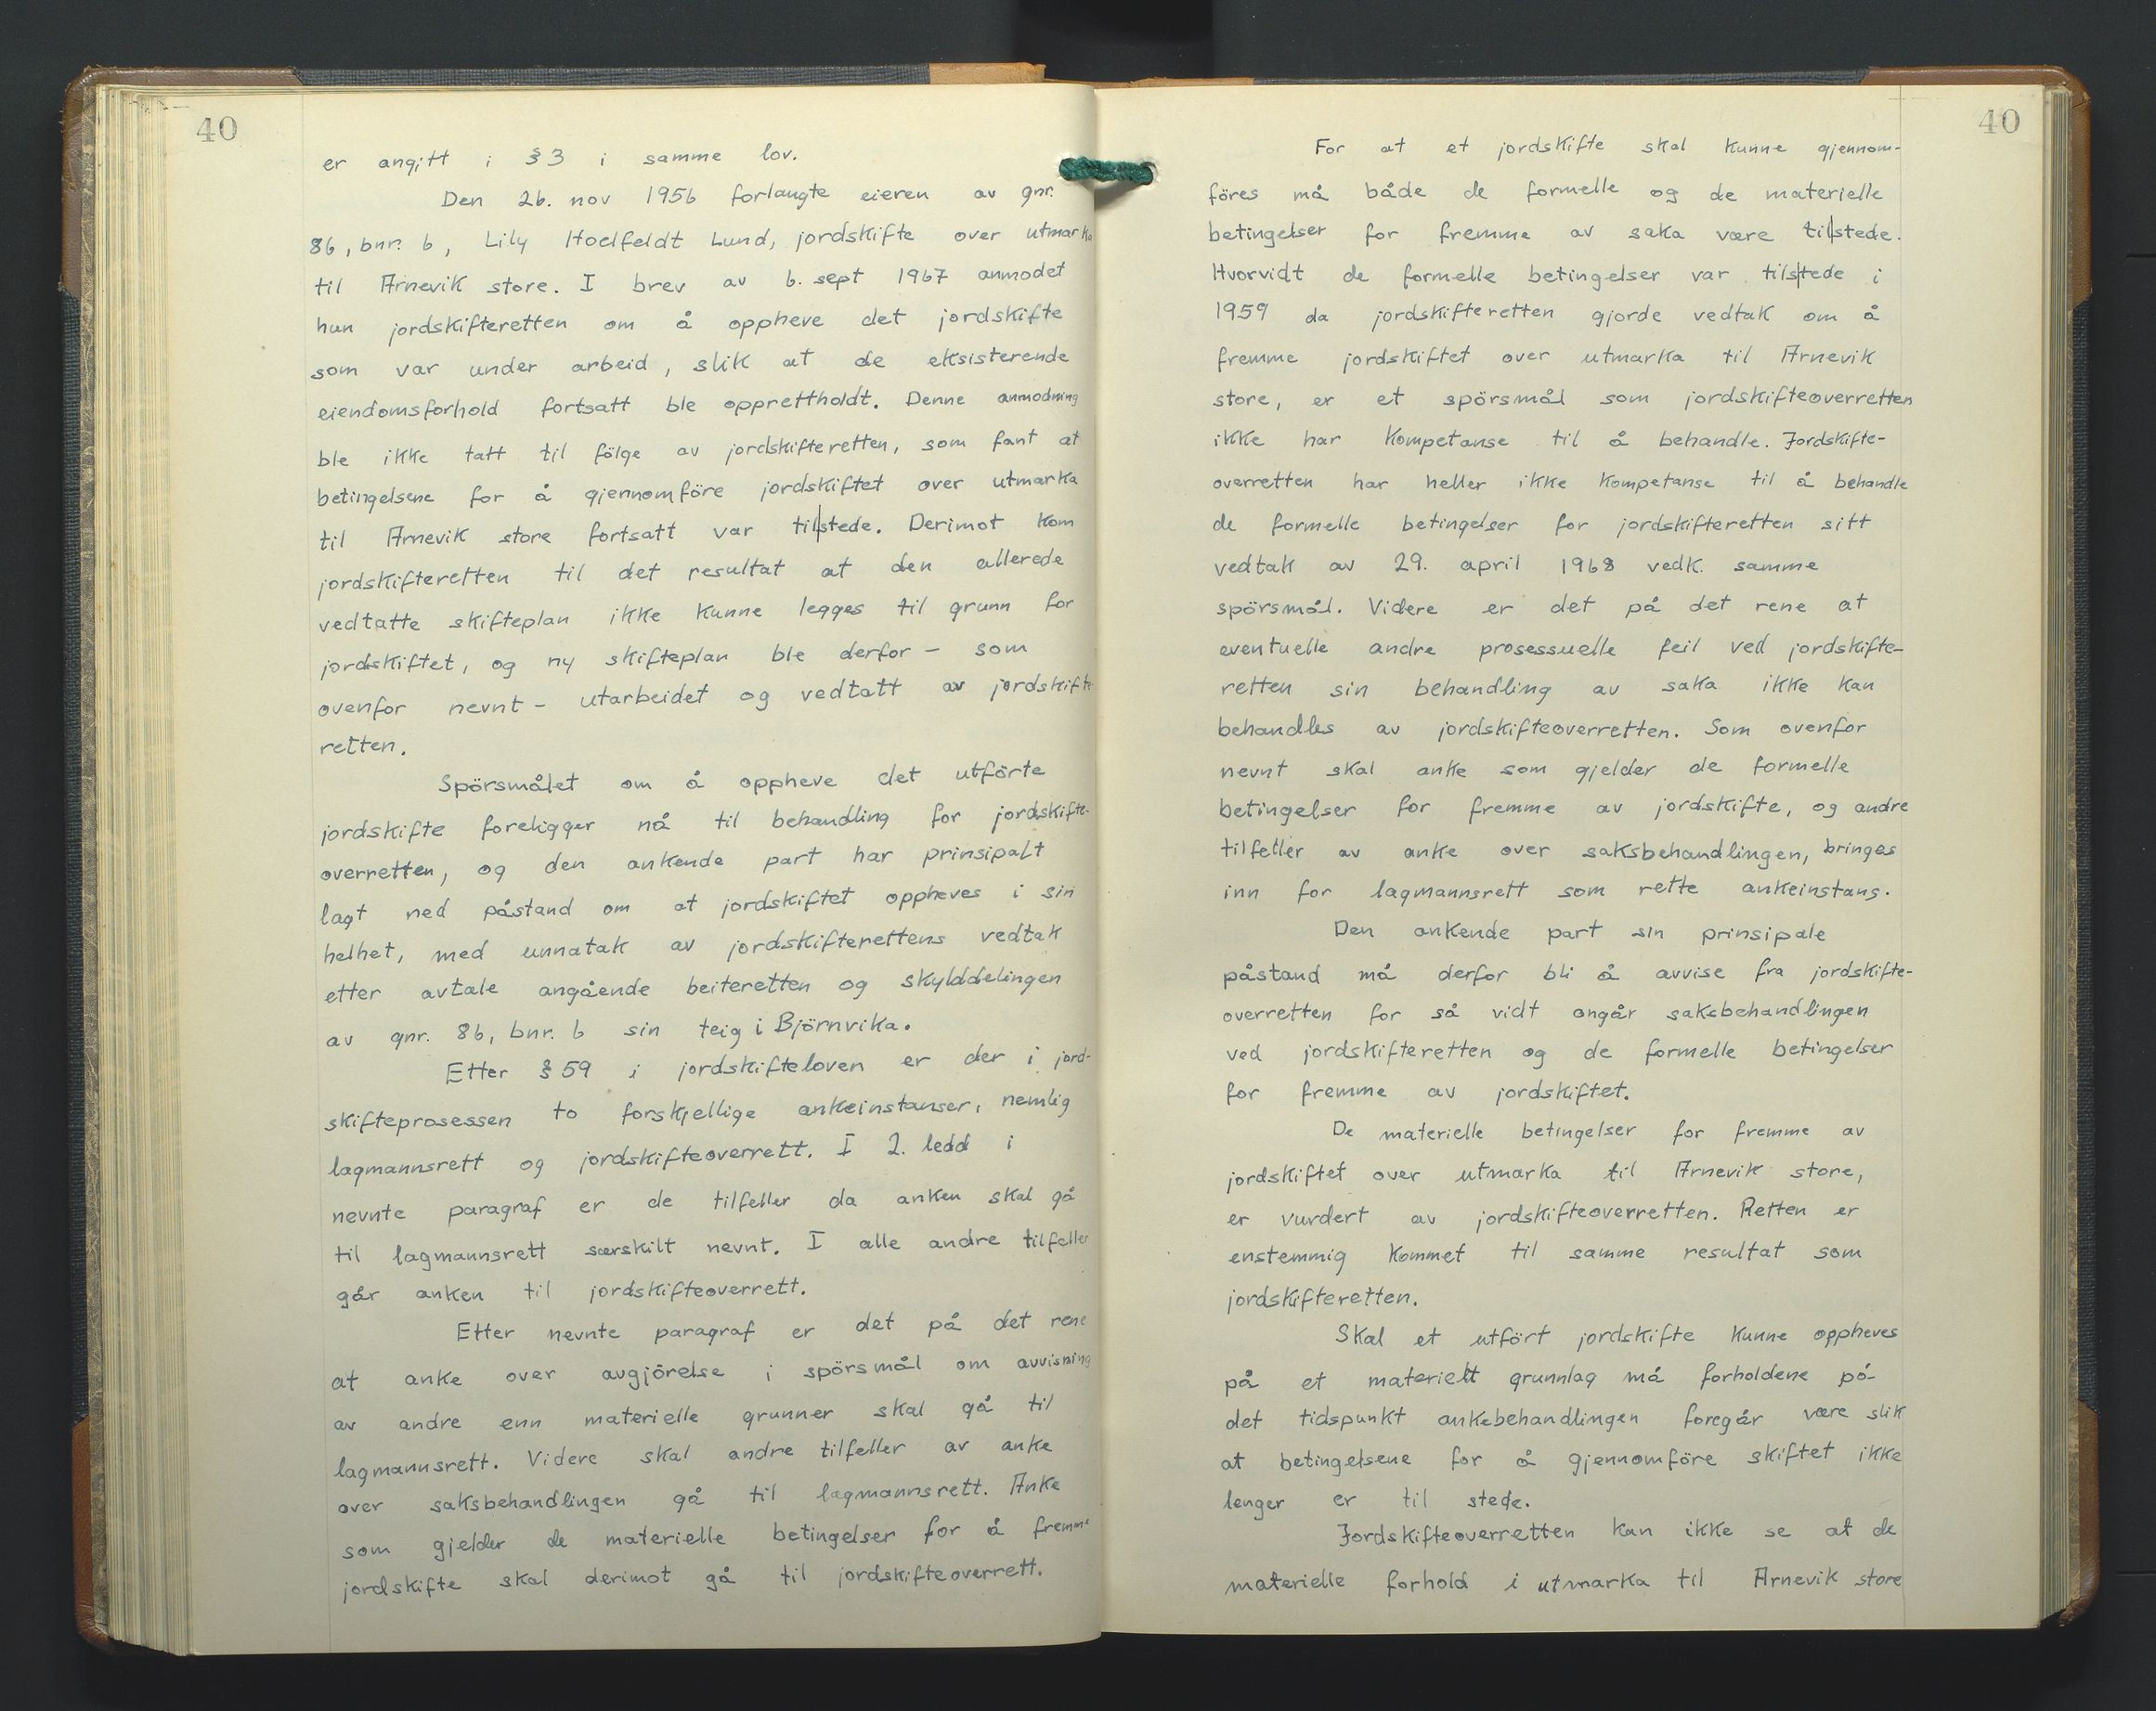 40
er angitt i §3 i samme lov.
Den 26. nov 1956 forlangte eieren av gnr.
86, bnr. 6, Lily Hoelfeldt Lund, jordskifte over utmarka
til Arnevik store. I brev av 6. sept 1967 anmodet
hun jordskifteretten om å oppheve det jordskifte
som var under arbeid, slik at de eksisterende
eiendomsforhold fortsatt ble opprettholdt. Denne anmodning
ble ikke tatt til fölge av jordskifteretten, som fant at
betingelsene for å gjennomföre jordskiftet over utmarka
til Arnevik store fortsatt var til|stede. Derimot kom
jordskifteretten til det resultat at den allerede
vedtatte skifteplan ikke kunne legges til grunn for
jordskiftet, og ny skifteplan ble derfor - som
ovenfor nevnt - utarbeidet og vedtatt av jordskifte-
retten.
Spörsmålet om å oppheve det utförte
jordskifte foreligger nå til behandling for jordskifte-
overretten, og den ankende part har prinsipalt
lagt ned påstand om at jordskiftet oppheves i sin
helhet, med unnatak av jordskifterettens vedtak
etter avtale angående beiteretten og skylddelingen
av gnr. 86, bnr. 6 sin teig i Björnvika.
Etter §59 i jordskifteloven er der i jord-
skifteprosessen to forskjellige ankeinstanser, nemlig
lagmannsrett og jordskifteoverrett. I 2. ledd i
nevnte paragraf er de tilfeller da anken skal gå
til lagmannsrett særskilt nevnt. I alle andre tilfeller
går anken til jordskifteoverrett.
Etter nevnte paragraf er det på det rene
at anke over avgjörelse i spörsmål om avvisning
av andre enn materielle grunner skal gå til
lagmannsrett. Videre skal andre tilfeller av anke
over saksbehandlingen gå til lagmannsrett. Anke
som gjelder de materielle betingelser for å fremme
jordskifte skal derimot gå til jordskifteoverrett.
40
For at et jordskifte skal kunne gjennom-
föres må både de formelle og de materielle
betingelser for fremme av saka være til|stede.
Hvorvidt de formelle betingelser var til|stede i
1959 da jordskifteretten gjorde vedtak om å
fremme jordskiftet over utmarka til Arnevik
store, er et spörsmål som jordskifteoverretten
ikke har kompetanse til å behandle. Jordskifte-
overretten har heller ikke kompetanse til å behandle
de formelle betingelser for jordskifteretten sitt
vedtak av 29. april 1968 vedk. samme
spörsmål. Videre er det på det rene at
eventuelle andre prosessuelle feil ved jordskifte-
retten sin behandling av saka ikke kan
behandles av jordskifteoverretten. Som ovenfor
nevnt skal anke som gjelder de formelle
betingelser for fremme av jordskifte, og andre
tilfeller av anke over saksbehandlingen, bringes
inn for lagmannsrett som rette ankeinstans.
Den ankende part sin prinsipale
påstand må derfor bli å avvise fra jordskifte-
overretten for så vidt angår saksbehandlingen
ved jordskifteretten og de formelle betingelser
for fremme av jordskiftet.
De materielle betingelser for fremme av
jordskiftet over utmarka til Arnevik store,
er vurdert av jordskifteoverretten. Retten er
enstemmig kommet til samme resultat som
jordskifteretten.
Skal et utfört jordskifte kunne oppheves
på et materielt grunnlag må forholdene på
det tidspunkt ankebehandlingen foregår være slik
at betingelsene for å gjennomföre skiftet ikke
lenger er til stede.
Jordskifteoverretten kan ikke se at de
materielle forhold i utmarka til Arnevik store